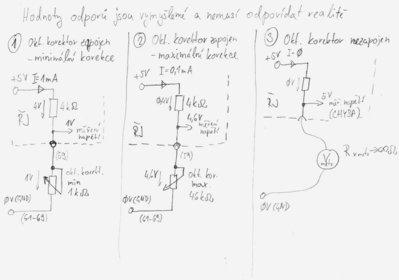 Hodnoty odporů jsou vymyšlené a nemusí odpovídat realitě
① Okt. korektor zapojen
- minimální korekce
+5V I=1mA
4V
4kΩ
ŘJ
1V
měření
napětí
(59)
1V
okt. korekt.
min
1kΩ
0V (GND)
(61-69)
② Okt. korektor zapojen
- maximální korekce
I=0,1mA
+5V
0,4V
4kΩ
ŘJ
4,6V
měření
napětí
(59)
4,6V
okt. kor.
max.
46kΩ
0V (GND)
(61-69)
③ Okt. korektor nezapojen
I=0
+5V
0V
ŘJ
5V
měř. napětí
(CHYBA)
V
R vmetr → ∞Ω
0V (GND)